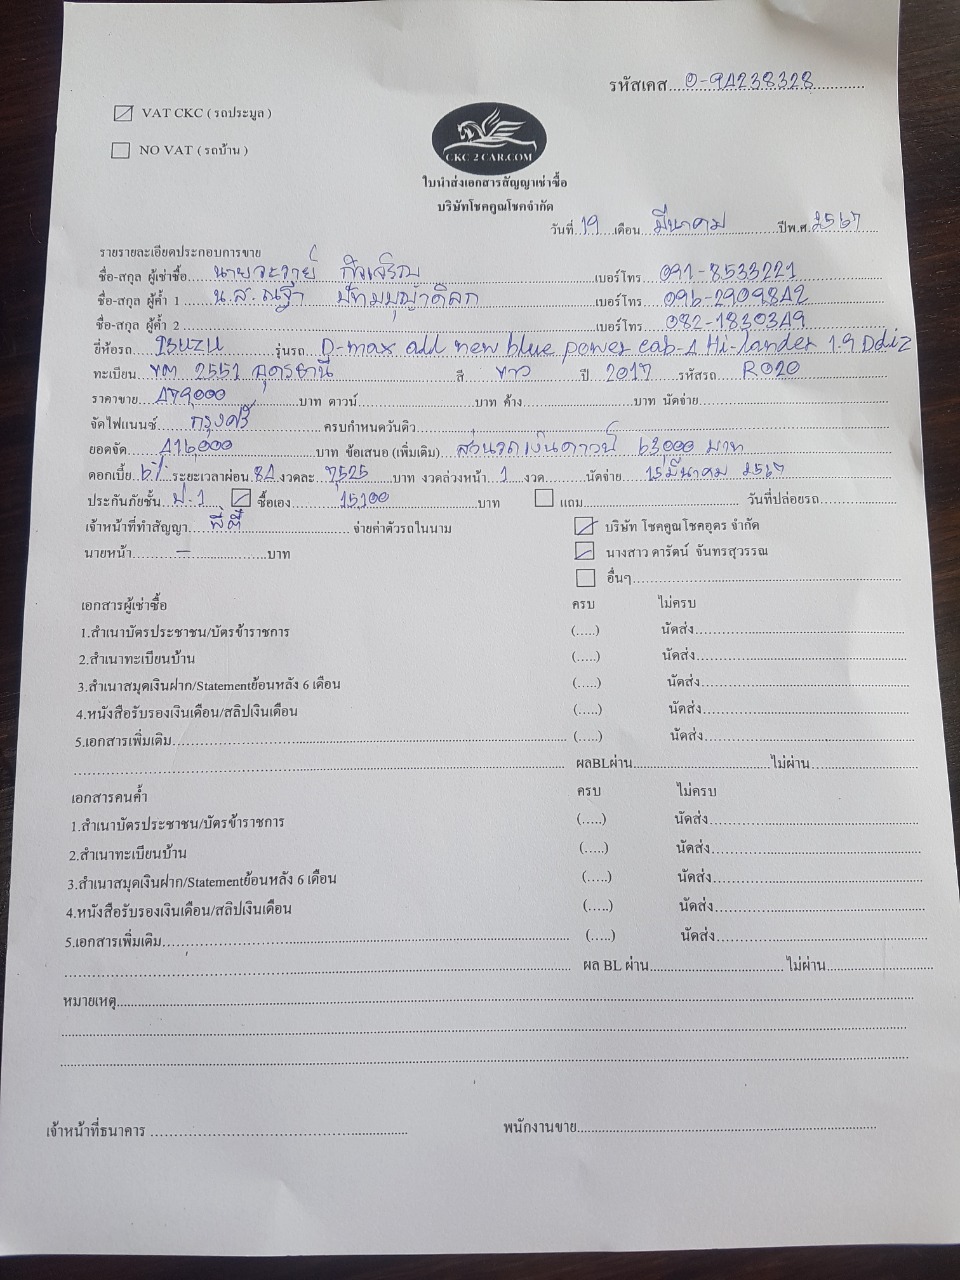 รหัสเคส....0-94238328
VAT CKC ( รถประมูล )
NO VAT ( รถบ้าน )
CKC 2 CAR.COM
ใบนำส่งเอกสารสัญญาเช่าซื้อ
บริษัทโชคคูณโชคจำกัด
วันที่ 19 เดือน มีนาคม ปีพ.ศ. 2567
รายรายละเอียดประกอบการขาย
ชื่อ-สกุล ผู้เช่าซื้อ นาย เบอร์โทร 091-8533221
ชื่อ-สกุล ผู้ค้ำ 1 น.ส. เบอร์โทร 096-2909842
ชื่อ-สกุล ผู้ค้ำ 2 เบอร์โทร 082-1830349
ยี่ห้อรถ ISUZU รุ่นรถ D-max all new blue power cab-4 Hi-lander 1.9 Ddi Z
ทะเบียน 2551 อุดรธานี สี ขาว ปี 2017 รหัสรถ R020
ราคาขาย 479,000 บาท ดาวน์ บาท ค้าง บาท นัดจ่าย
จัดไฟแนนซ์ กรุงศรี ครบกำหนดวันดิว
ยอดจัด 416,000 บาท ข้อเสนอ (เพิ่มเติม) ส่วนรถเงินดาวน์ 63,000 บาท
ดอกเบี้ย 6% ระยะเวลาผ่อน 84 งวดละ 7,525 บาท งวดล่วงหน้า 1 งวด นัดจ่าย 15 มีนาคม 2567
ประกันภัยชั้น ป.1 ซื้อเอง 15,100 บาท แถม วันที่ปล่อยรถ
เจ้าหน้าที่ทำสัญญา พี่ตี๋ จ่ายค่าตัวรถในนาม บริษัท โชคคูณโชคอุดร จำกัด
นายหน้า - บาท นางสาว ดารัตน์ จันทรสุวรรณ
อื่นๆ
เอกสารผู้เช่าซื้อ ครบ ไม่ครบ
1.สำเนาบัตรประชาชน/บัตรข้าราชการ (.....) นัดส่ง
2.สำเนาทะเบียนบ้าน (.....) นัดส่ง
3.สำเนาสมุดเงินฝาก/Statementย้อนหลัง 6 เดือน (.....) นัดส่ง
4.หนังสือรับรองเงินเดือน/สลิปเงินเดือน (.....) นัดส่ง
5.เอกสารเพิ่มเติม (.....) นัดส่ง
ผลBLผ่าน ไม่ผ่าน
เอกสารคนค้ำ ครบ ไม่ครบ
1.สำเนาบัตรประชาชน/บัตรข้าราชการ (.....) นัดส่ง
2.สำเนาทะเบียนบ้าน (.....) นัดส่ง
3.สำเนาสมุดเงินฝาก/Statementย้อนหลัง 6 เดือน (.....) นัดส่ง
4.หนังสือรับรองเงินเดือน/สลิปเงินเดือน (.....) นัดส่ง
5.เอกสารเพิ่มเติม (.....) นัดส่ง
ผล BL ผ่าน ไม่ผ่าน
หมายเหตุ
เจ้าหน้าที่ธนาคาร พนักงานขาย